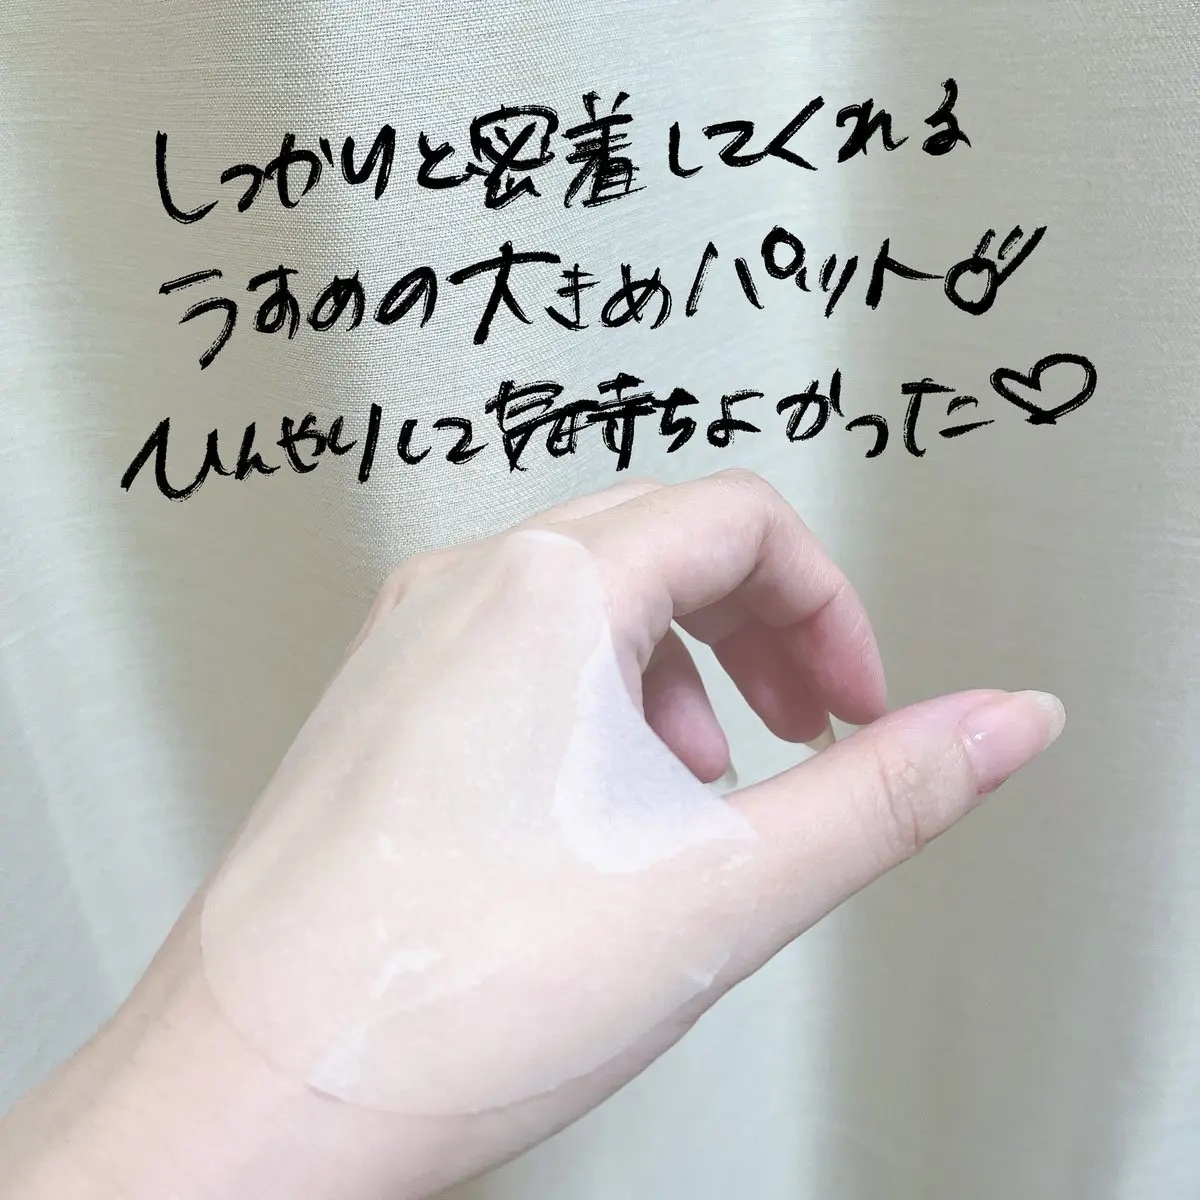 しっかりと密着してくれる
うすめの大きめパット
ひんやりして気持ちよかった♡